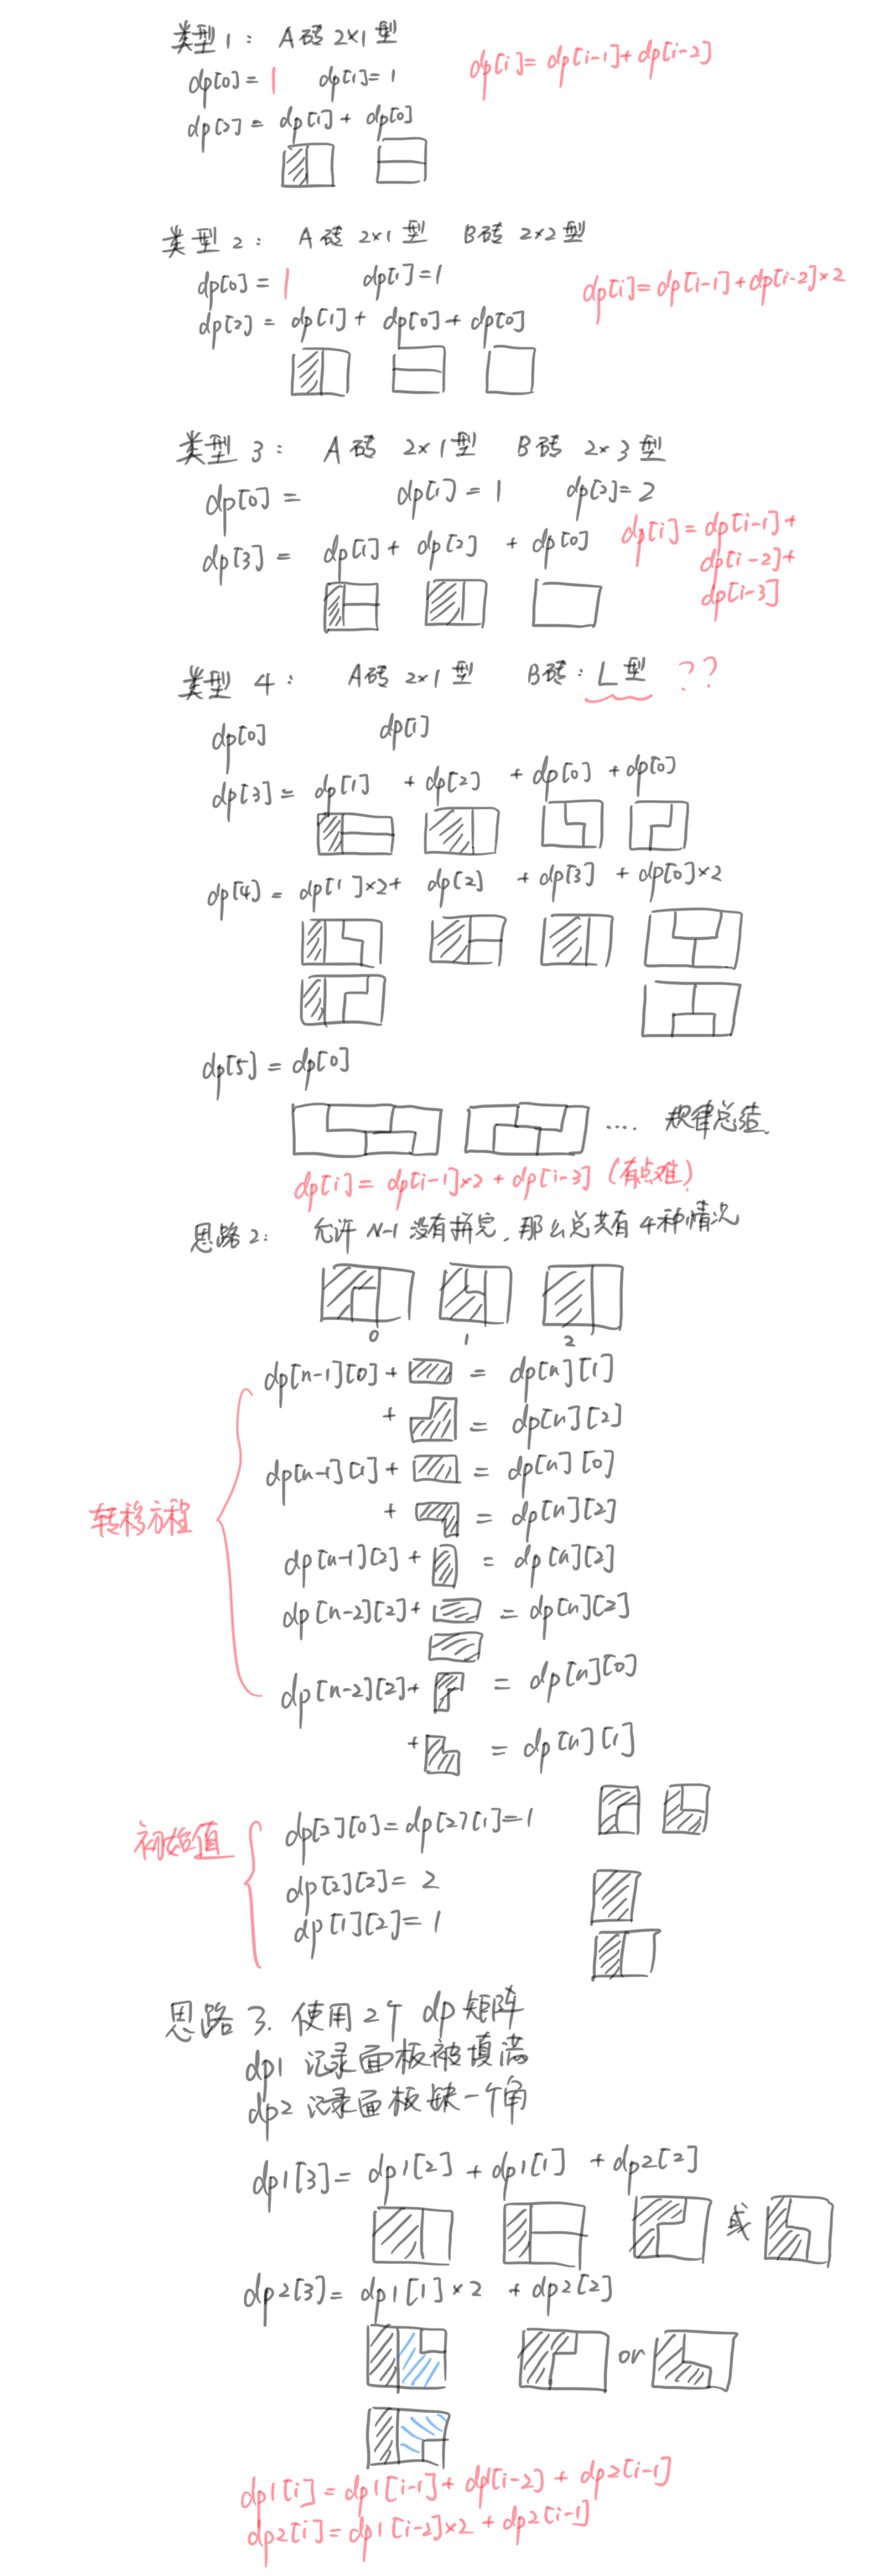 类型1： A砖 2×1型
dp[0]= 1 dp[1]= 1 dp[i]= dp[i-1]+dp[i-2]
dp[2]= dp[1]+ dp[0]
类型2： A砖 2×1型 B砖 2×2型
dp[0]= 1 dp[1]=1 dp[i]=dp[i-1]+dp[i-2]×2
dp[2]= dp[1]+ dp[0]+ dp[0]
类型3： A砖 2×1型 B砖 2×3型
dp[0]= dp[1]=1 dp[2]=2
dp[3]= dp[1]+ dp[2] + dp[0] dp[i]=dp[i-1]+
dp[i-2]+
dp[i-3]
类型4： A砖 2×1型 B砖：L型 ??
dp[0] dp[1]
dp[3]= dp[1] +dp[2] +dp[0] +dp[0]
dp[4]= dp[1]×2+ dp[2] +dp[3] +dp[0]×2
dp[5]=dp[0]
.... 规律总结
dp[i]= dp[i-1]×2 + dp[i-3] (有点难)
思路2： 允许N-1没有拼完，那么总共有4种情况
0 1 2
dp[n-1][0]+ = dp[n][1]
+ = dp[n][2]
dp[n-1][1]+ = dp[n][0]
+ = dp[n][2]
转移方程
dp[n-1][2]+ = dp[n][2]
dp[n-2][2]+ = dp[n][2]
dp[n-2][2]+ = dp[n][0]
+ = dp[n][1]
初始值
dp[2][0]=dp[2][1]=1
dp[2][2]= 2
dp[1][2]=1
思路3. 使用2个dp矩阵
dp1 记录面板被填满
dp2 记录面板缺一个角
dp1[3]= dp1[2] +dp1[1] +dp2[2]
或
dp2[3]= dp1[1]×2 +dp2[2]
or
dp1[i]=dp1[i-1]+dp1[i-2]+ dp2[i-1]
dp2[i]=dp1[i-2]×2 +dp2[i-1]